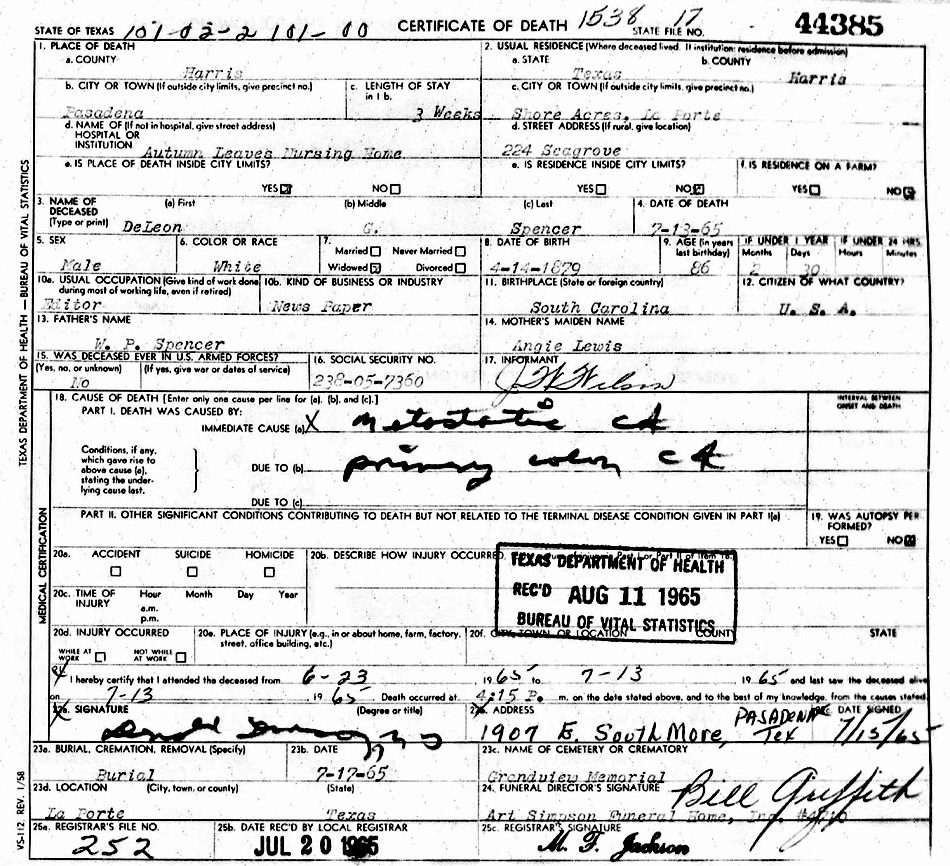 STATE OF TEXAS 101-02-2 101-00 CERTIFICATE OF DEATH 1538 17 STATE FILE NO. 44385
1. PLACE OF DEATH 2. USUAL RESIDENCE (Where deceased lived. If institution: residence before admission)
a. COUNTY Harris a. STATE Texas b. COUNTY Harris
b. CITY OR TOWN (If outside city limits, give precinct no.) c. LENGTH OF STAY in 1 b. c. CITY OR TOWN (If outside city limits, give precinct no.)
Pasadena 3 Weeks Shore Acres, La Porte
d. NAME OF (If not in hospital, give street address) HOSPITAL OR INSTITUTION d. STREET ADDRESS (If rural, give location)
Autumn Leaves Nursing Home 224 Seagrove
e. IS PLACE OF DEATH INSIDE CITY LIMITS? e. IS RESIDENCE INSIDE CITY LIMITS? f. IS RESIDENCE ON A FARM?
YES NO YES NO YES NO
3. NAME OF DECEASED (Type or print) (a) First (b) Middle (c) Last 4. DATE OF DEATH
DeLeon G. Spencer 7-13-65
5. SEX 6. COLOR OR RACE 7. Married Never Married 8. DATE OF BIRTH 9. AGE (In years last birthday) IF UNDER 1 YEAR IF UNDER 24 HRS.
Months Days Hours Minutes
Male White Widowed Divorced 4-14-1879 86 2 30
10a. USUAL OCCUPATION (Give kind of work done during most of working life, even if retired) 10b. KIND OF BUSINESS OR INDUSTRY 11. BIRTHPLACE (State or foreign country) 12. CITIZEN OF WHAT COUNTRY?
Editor News Paper South Carolina U. S. A.
13. FATHER'S NAME 14. MOTHER'S MAIDEN NAME
W. P. Spencer Angie Lewis
15. WAS DECEASED EVER IN U.S. ARMED FORCES? 16. SOCIAL SECURITY NO. 17. INFORMANT
(Yes, no, or unknown) (If yes, give war or dates of service)
No 238-05-7360 J W Wilson
18. CAUSE OF DEATH [Enter only one cause per line for (a), (b), and (c).] INTERVAL BETWEEN ONSET AND DEATH
PART I. DEATH WAS CAUSED BY:
IMMEDIATE CAUSE (a) X metastatic CA
Conditions, if any, which gave rise to above cause (a), stating the underlying cause last.
DUE TO (b) primary colon CA
DUE TO (c)
PART II. OTHER SIGNIFICANT CONDITIONS CONTRIBUTING TO DEATH BUT NOT RELATED TO THE TERMINAL DISEASE CONDITION GIVEN IN PART I(a) 19. WAS AUTOPSY PERFORMED?
YES NO
20a. ACCIDENT SUICIDE HOMICIDE 20b. DESCRIBE HOW INJURY OCCURRED.
TEXAS DEPARTMENT OF HEALTH
REC'D AUG 11 1965
BUREAU OF VITAL STATISTICS
20c. TIME OF INJURY Hour Month Day Year
a.m.
p.m.
20d. INJURY OCCURRED 20e. PLACE OF INJURY (e.g., in or about home, farm, factory, street, office building, etc.) 20f. CITY, TOWN, OR LOCATION COUNTY STATE
WHILE AT WORK NOT WHILE AT WORK
I hereby certify that I attended the deceased from 6-23 1965 to 7-13 1965 and last saw the deceased alive
on 7-13 1965 Death occurred at 4:15 P. m. on the date stated above, and to the best of my knowledge, from the causes stated.
SIGNATURE (Degree or title) ADDRESS DATE SIGNED
1907 E. South More, PASADENA Tex 7/15/65
23a. BURIAL, CREMATION, REMOVAL (Specify) 23b. DATE 23c. NAME OF CEMETERY OR CREMATORY
Burial 7-17-65 Grandview Memorial
23d. LOCATION (City, town, or county) (State) 24. FUNERAL DIRECTOR'S SIGNATURE Bill Griffith
La Porte Texas Art Simpson Funeral Home, Inc.
25a. REGISTRAR'S FILE NO. 25b. DATE REC'D BY LOCAL REGISTRAR 25c. REGISTRAR'S SIGNATURE
252 JUL 20 1965 M. F. Jackson
TEXAS DEPARTMENT OF HEALTH — BUREAU OF VITAL STATISTICS
MEDICAL CERTIFICATION
VS-112 REV. 1/58